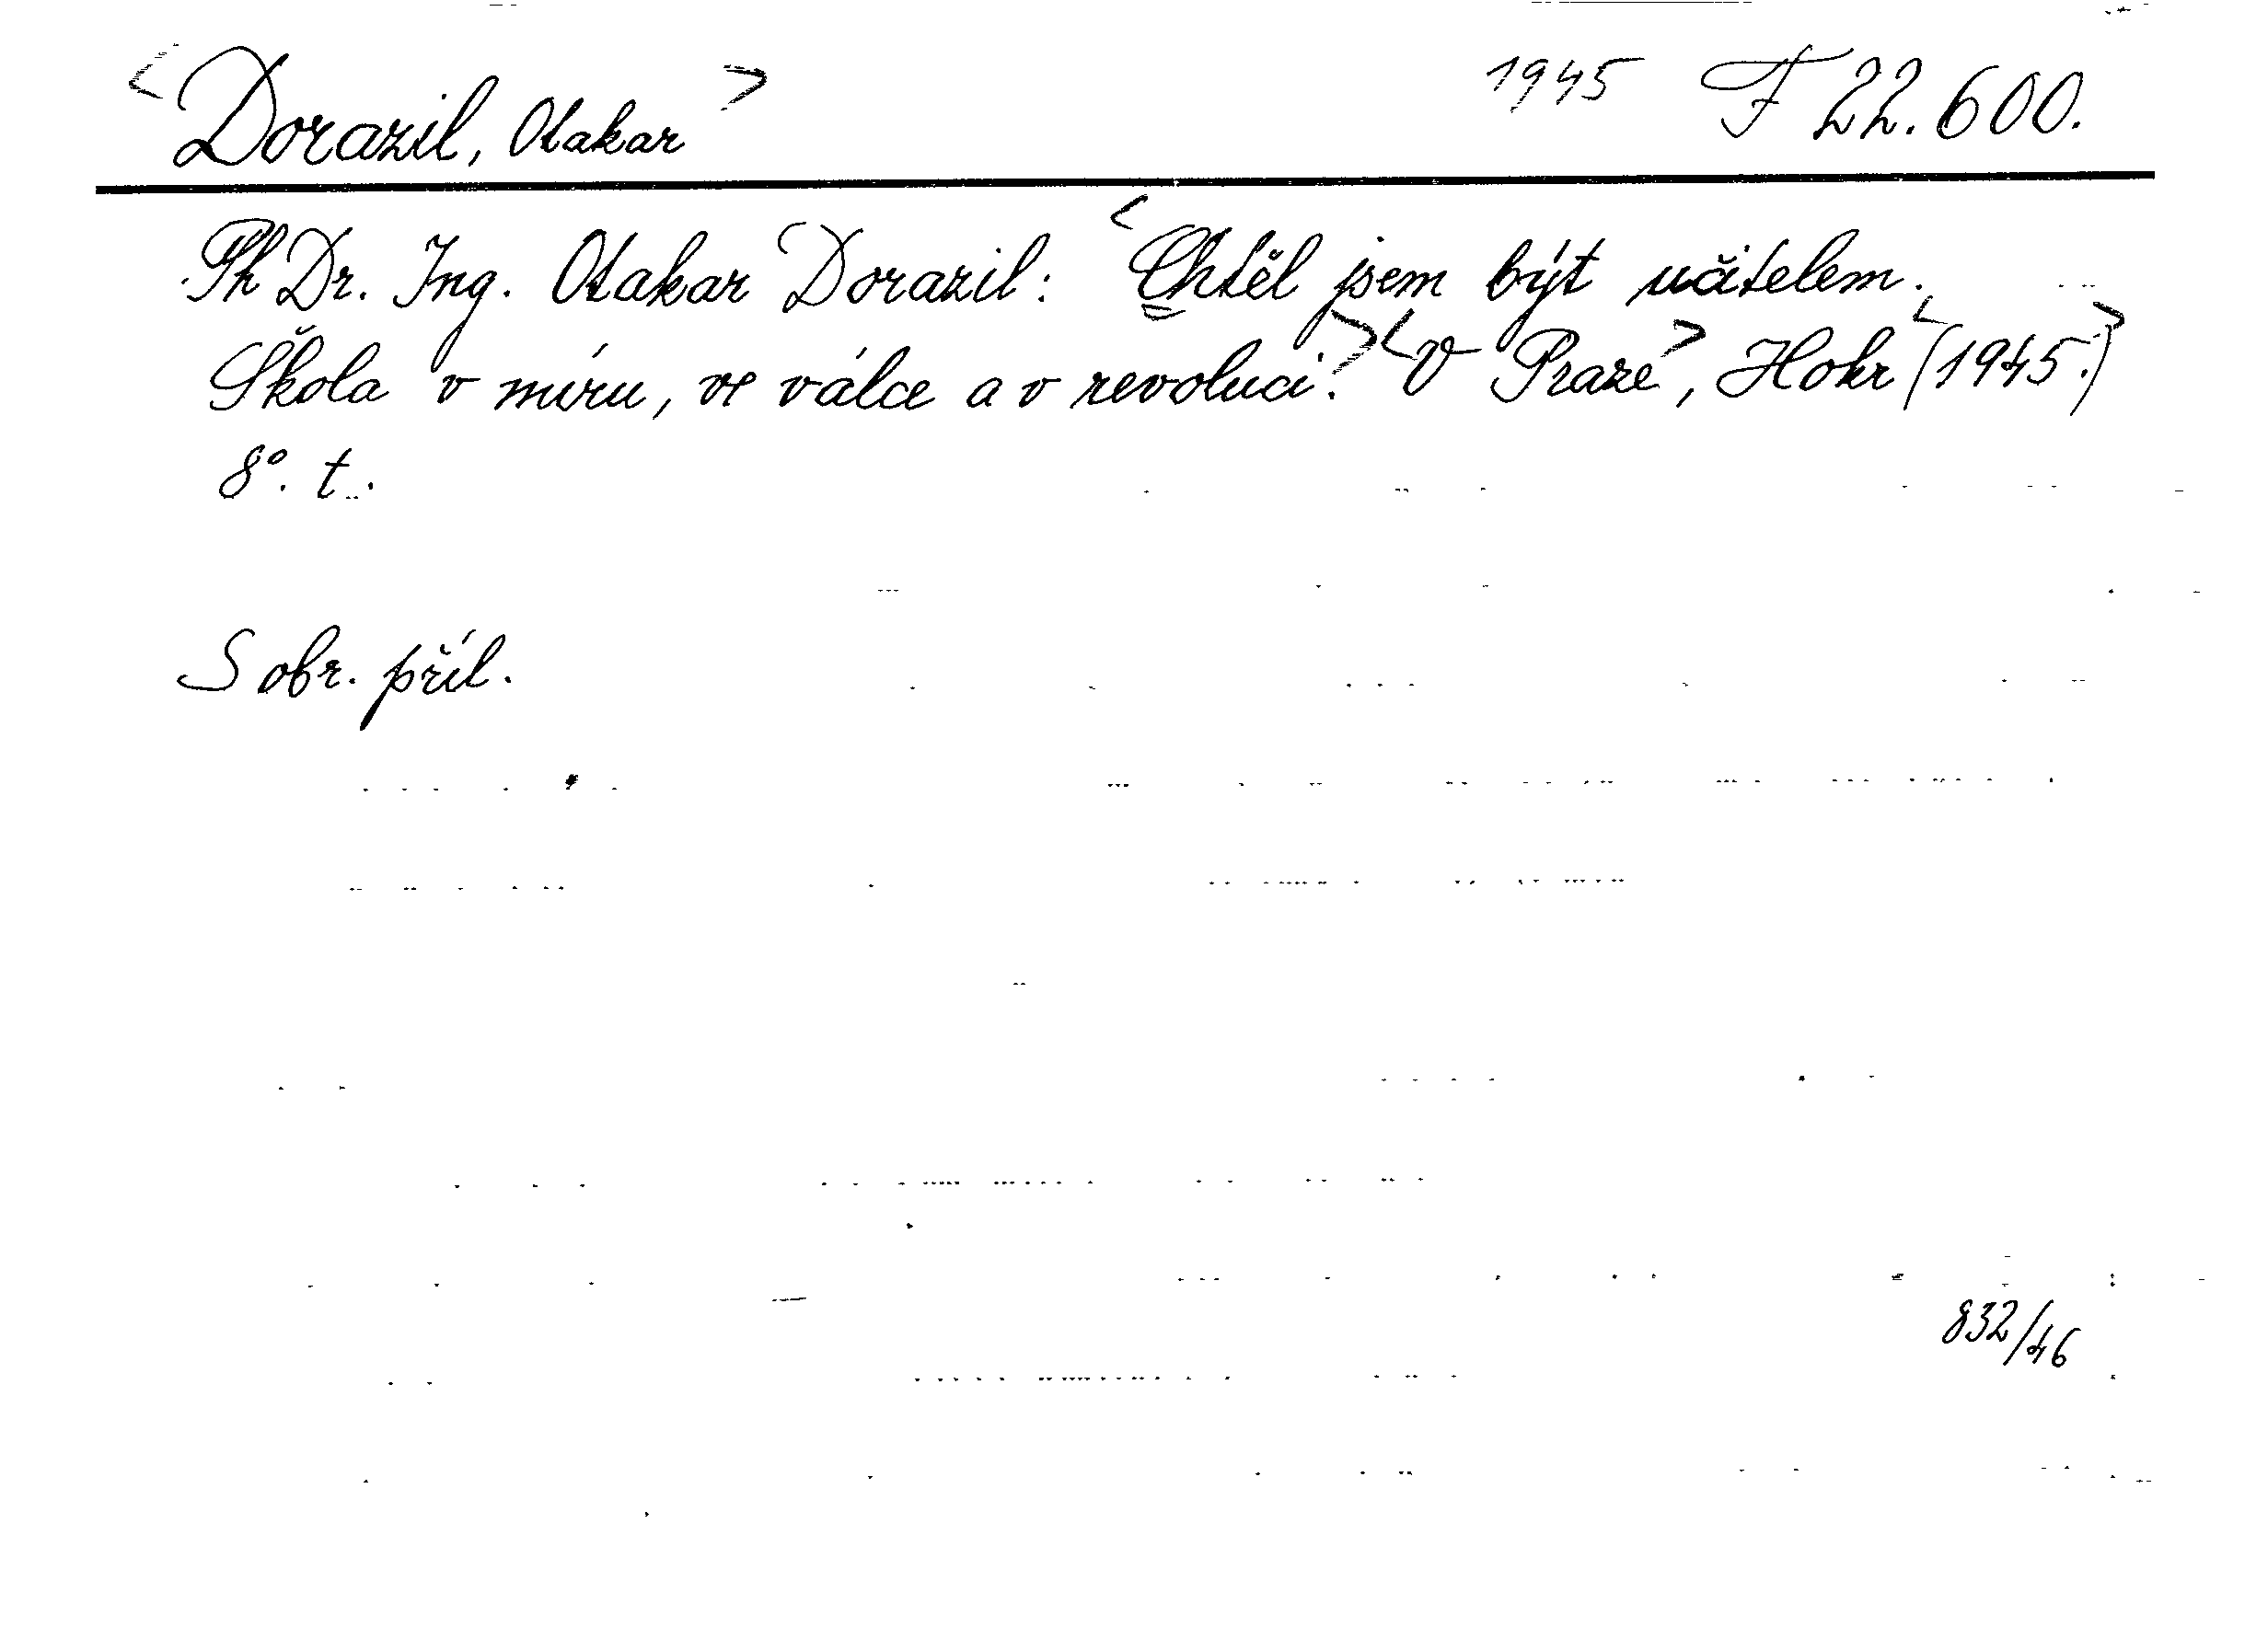 <Dorazil, Otakar> 1945 F 22.600.
PhDr. Ing. Otakar Dorazil: <Chtěl jsem být učitelem.
Škola v míru, ve válce a v revoluci.> <V Praze>, Hokr <(1945.)>
8°. t.
S obr. příl.
832/46